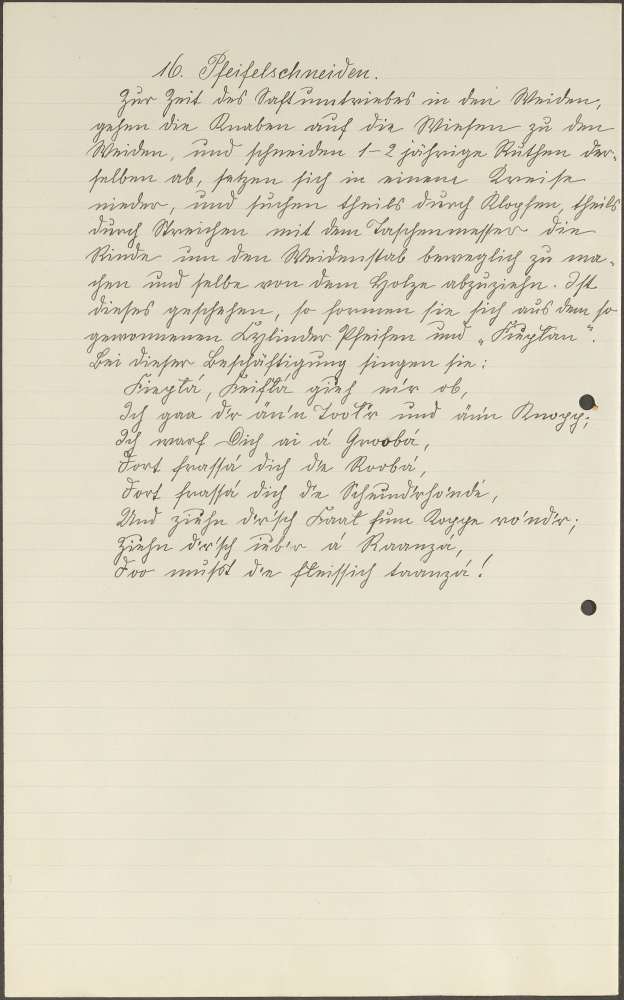 16. Pfeifelschneiden.
Zur Zeit des Saftumtriebes in den Weiden,
gehen die Knaben auf die Wiesen zu den
Weiden, und schneiden 1-2 jährige Ruthen der-
selben ab, setzen sich in einem Kreise
nieder, und suchen theils durch Klopfen, theils
durch Streichen mit dem Taschenmesser die
Rinde um den Weidenstab beweglich zu ma-
chen und selbe von dem Holze abzuziehn. Ist
dieses geschehen, so formen sie sich aus dem so
gewonnenen Cylinder Pfeifen und „Fieplan“.
Bei dieser Beschäftigung singen sie:
gieh me'r ob,
Ich gaa d'r än'n Tool'r und än'n Knopp;
Ich warf Dich ai á Groobá,
Dort frassá dich d'e Roobá,
Dort frassá dich d'e Schund'rhonde,
Und ziehn d'r'sch Faal fum Koppe ro'nd'r;
Ziehn d'r'sch ieb'r á Raanza,
Doo mußt d'e fleissich taanzá!